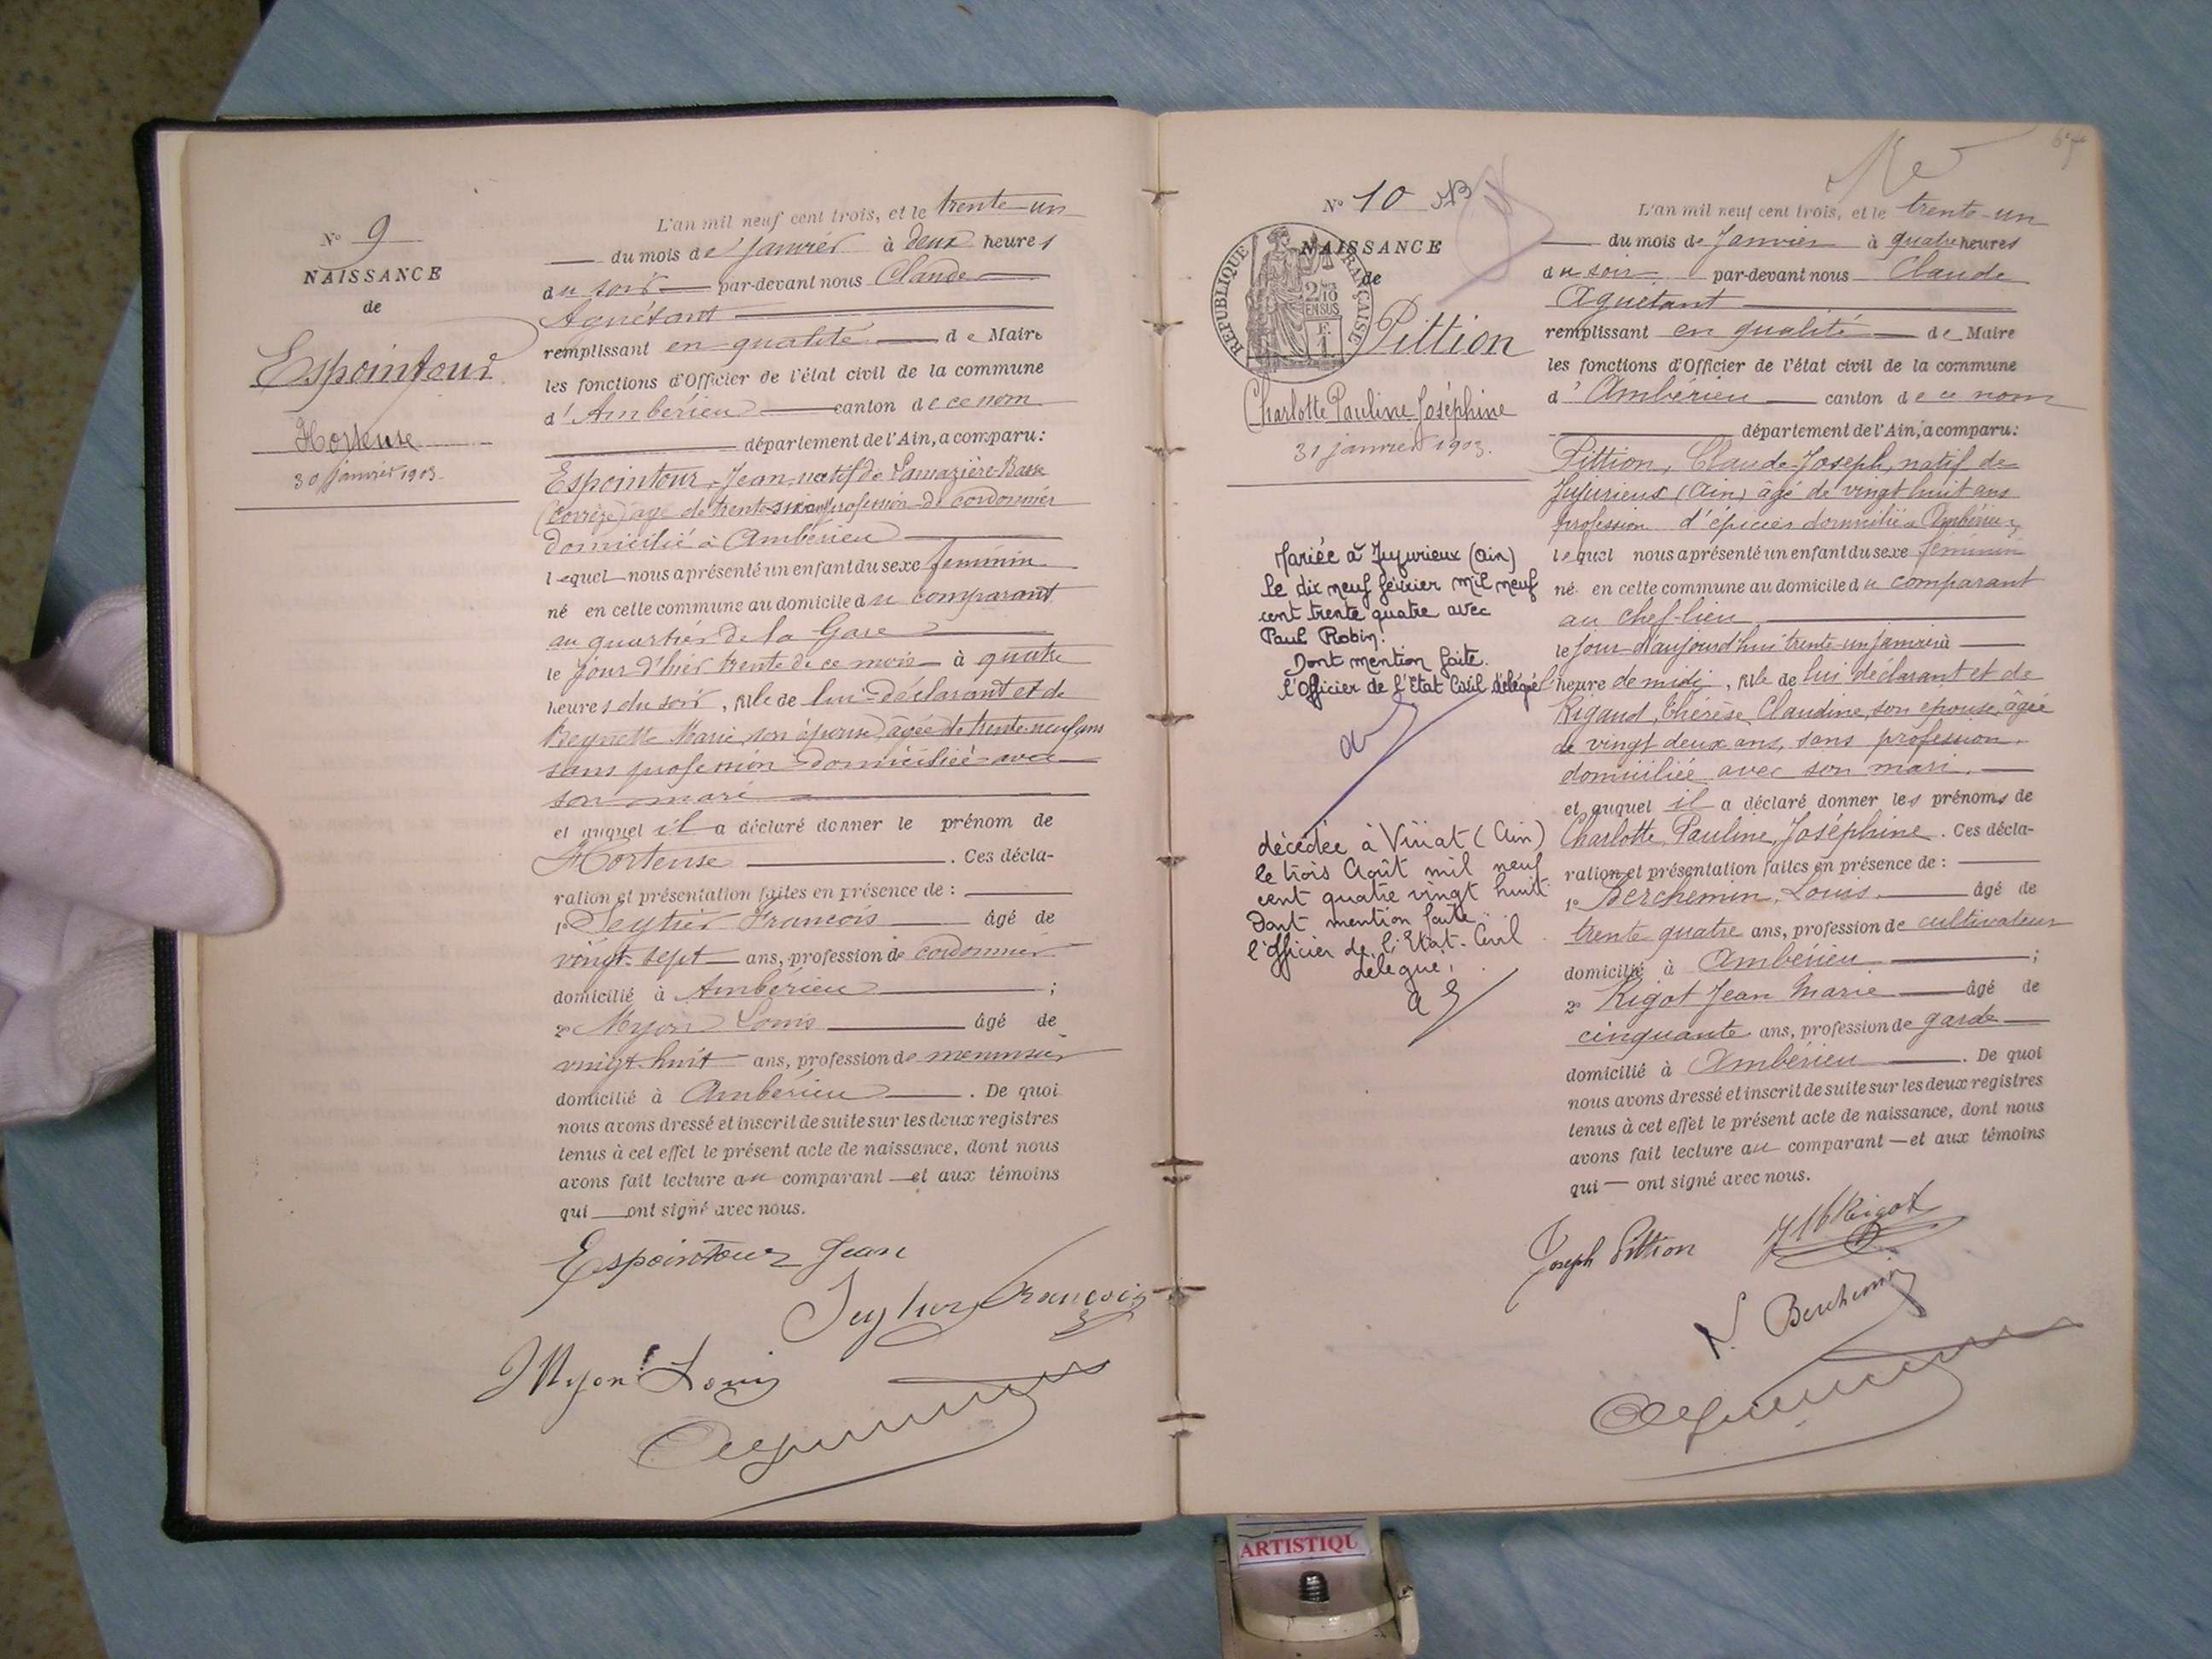 N° 9
NAISSANCE
de
Espointour
Hortense
30 janvier 1903.
L'an mil neuf cent trois, et le trente-un
du mois de janvier à deux heures
du soir par-devant nous Claude
Aguétant
remplissant en qualité de Maire
les fonctions d'Officier de l'état civil de la commune
d'Ambérieu canton de ce nom
département de l'Ain, a comparu:
Espointour, Jean, natif de Lamazière-Basse
(Corrèze) âgé de trente six ans profession de cordonnier
domicilié à Ambérieu
lequel nous a présenté un enfant du sexe féminin
né en cette commune au domicile du comparant
au quartier de la Gare
le jour d'hier trente de ce mois à quatre
heures du soir, fille de lui déclarant et de
Marie, son épouse, âgée de trente-neuf ans
sans profession domiciliée avec
son mari
et auquel il a déclaré donner le prénom de
Hortense. Ces décla-
ration et présentation faites en présence de:
1° Seytier François âgé de
vingt-sept ans, profession de cordonnier
domicilié à Ambérieu;
2° Myon Louis âgé de
vingt-huit ans, profession de menuisier
domicilié à Ambérieu. De quoi
nous avons dressé et inscrit de suite sur les deux registres
tenus à cet effet le présent acte de naissance, dont nous
avons fait lecture au comparant et aux témoins
qui ont signé avec nous.
Espointour Jean
François
Myon Louis
N° 10
NAISSANCE
de
REPUBLIQUE FRANÇAISE
2/10
EN SUS
Pittion
Charlotte Pauline Joséphine
31 janvier 1903.
Mariée à Jujurieux (Ain)
le dix neuf février mil neuf
cent trente quatre avec
Paul Robin.
Dont mention faite.
l'Officier de l'Etat Civil délégué
décédée à Viriat (Ain)
le trois Août mil neuf
cent quatre vingt huit
Dont mention faite
l'officier de l'Etat-Civil
délégué,
L'an mil neuf cent trois, et le trente-un
du mois de Janvier à quatre heures
du soir par-devant nous Claude
Aguétant
remplissant en qualité de Maire
les fonctions d'Officier de l'état civil de la commune
d'Ambérieu canton de ce nom
département de l'Ain, a comparu:
Pittion, Claude-Joseph, natif de
Jujurieux (Ain) âgé de vingt huit ans
profession d'épicier domicilié à Ambérieu,
lequel nous a présenté un enfant du sexe féminin
né en cette commune au domicile du comparant
au chef-lieu
le jour d'aujourd'hui trente-un janvier à
heure de midi, fille de lui déclarant et de
Rigaud, Thérèse, Claudine, son épouse, âgée
de vingt deux ans, sans profession,
domiciliée avec son mari.
et auquel il a déclaré donner les prénoms de
Charlotte, Pauline, Joséphine. Ces décla-
ration et présentation faites en présence de:
1° Berchemin, Louis, âgé de
trente quatre ans, profession de cultivateur
domicilié à Ambérieu;
2° Rigot Jean Marie âgé de
cinquante ans, profession de garde
domicilié à Ambérieu. De quoi
nous avons dressé et inscrit de suite sur les deux registres
tenus à cet effet le présent acte de naissance, dont nous
avons fait lecture au comparant et aux témoins
qui ont signé avec nous.
Joseph Pittion
Rigot
L. Berchemin
ARTISTIQU